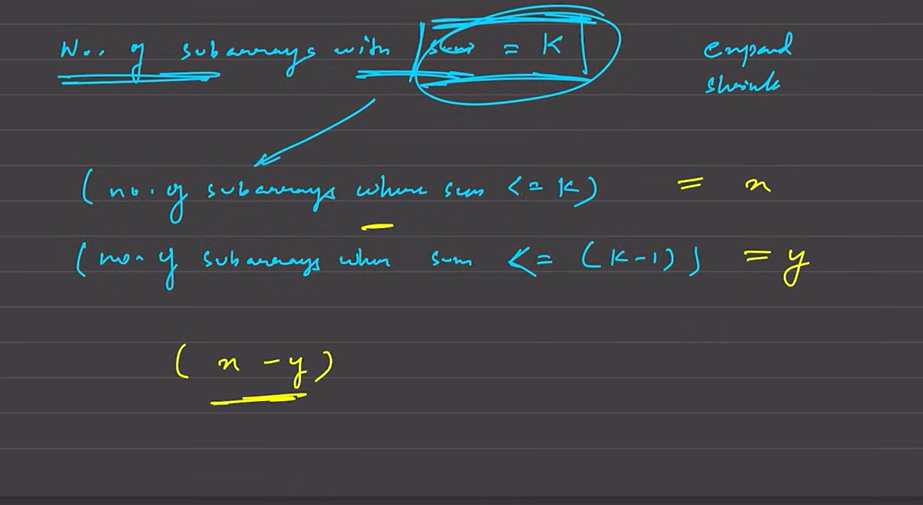 No. of subarrays with sum = K
expand
shrink
(no. of subarrays where sum <= K) = x
(no. of subarrays when sum <= (K-1)) = y
(x - y)